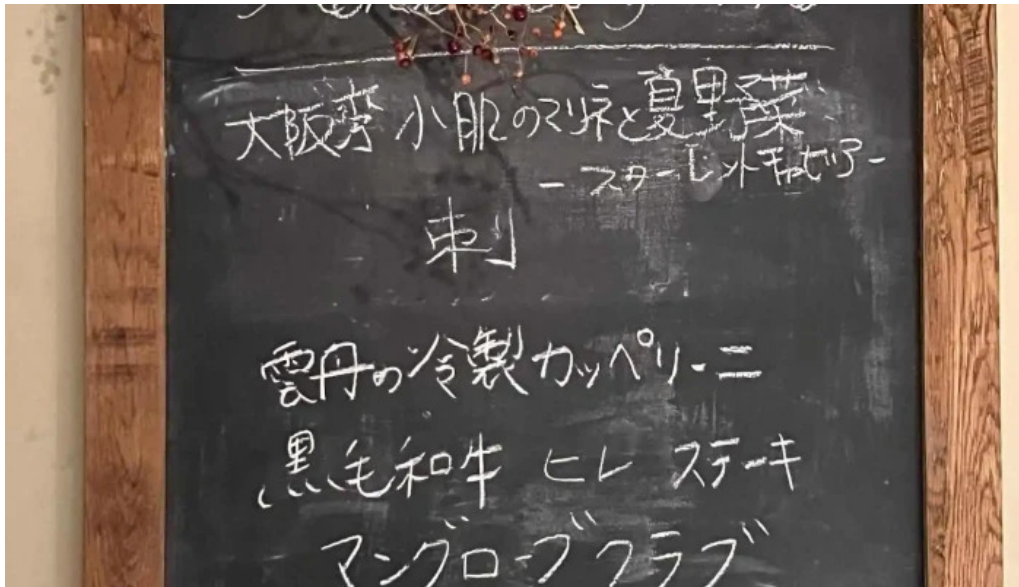 大阪湾 小肌のマリネと夏野菜
- スターレットキャビア -
刺
雲丹の冷製カッペリーニ
黒毛和牛 ヒレ ステーキ
マングローブクラブ